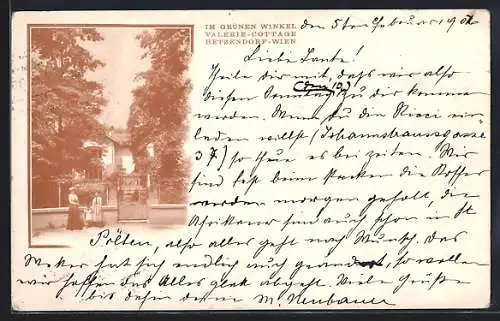 IM GRÜNEN WINKEL
VALERIE-COTTAGE
HETZENDORF-WIEN
den 5ten Februar 1902
Liebe Tante!
Theile dir mit, dass wir also
diesen Sonntag zu dir kommen
werden. Wenn du den Ricci ein
laden willst (Johannshausgasse
37) so thue es bei zeiten. Wir
sind fest beim Packen die Koffer
werden morgen geholt, die
Afrikaner sind auch schon in St
Pölten, also alles geht nach Wunsch. Das
Wetter hat sich endlich auch geändert, so wollen
wir hoffen das Alles glat abgeht. Viele Grüße
bis dahin deine M. Neubauer